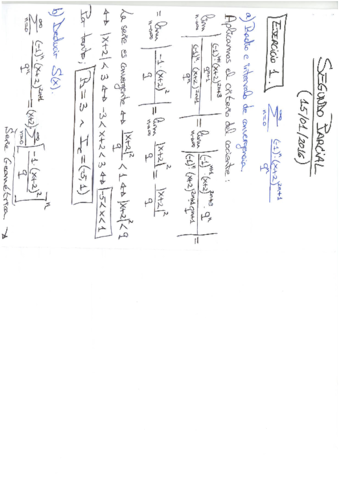 SEGUNDO PARCIAL
(15/01/2016)
EJERCICIO 1. $\sum_{n=0}^{\infty} \frac{(-1)^n (x+2)^{2n+1}}{9^n}$
a) Radio e intervalo de convergencia
Aplicamos el criterio del cociente:
$\lim_{n\to\infty} \left| \frac{\frac{(-1)^{n+1} (x+2)^{2n+3}}{9^{n+1}}}{\frac{(-1)^n (x+2)^{2n+1}}{9^n}} \right| = \lim_{n\to\infty} \left| \frac{(-1)^{n+1} (x+2)^{2n+3} \cdot 9^n}{(-1)^n (x+2)^{2n+1} 9^{n+1}} \right| =$
$= \lim_{n\to\infty} \left| \frac{-1 \cdot (x+2)^2}{9} \right| = \lim_{n\to\infty} \frac{|x+2|^2}{9} = \frac{|x+2|^2}{9}$
La serie es convergente ⇔ $\frac{|x+2|^2}{9} < 1$ ⇔ $|x+2|^2 < 9$
⇔ |x+2| < 3 ⇔ -3 < x+2 < 3 ⇔ -5 < x < 1
Por tanto, R = 3 ∧ I_c = (-5, 1)
b) Deducir S(x).
$\sum_{n=0}^{\infty} \frac{(-1)^n (x+2)^{2n+1}}{9^n} = (x+2) \sum_{n=0}^{\infty} \left[ \frac{-1 \cdot (x+2)^2}{9} \right]^n$
Serie Geométrica